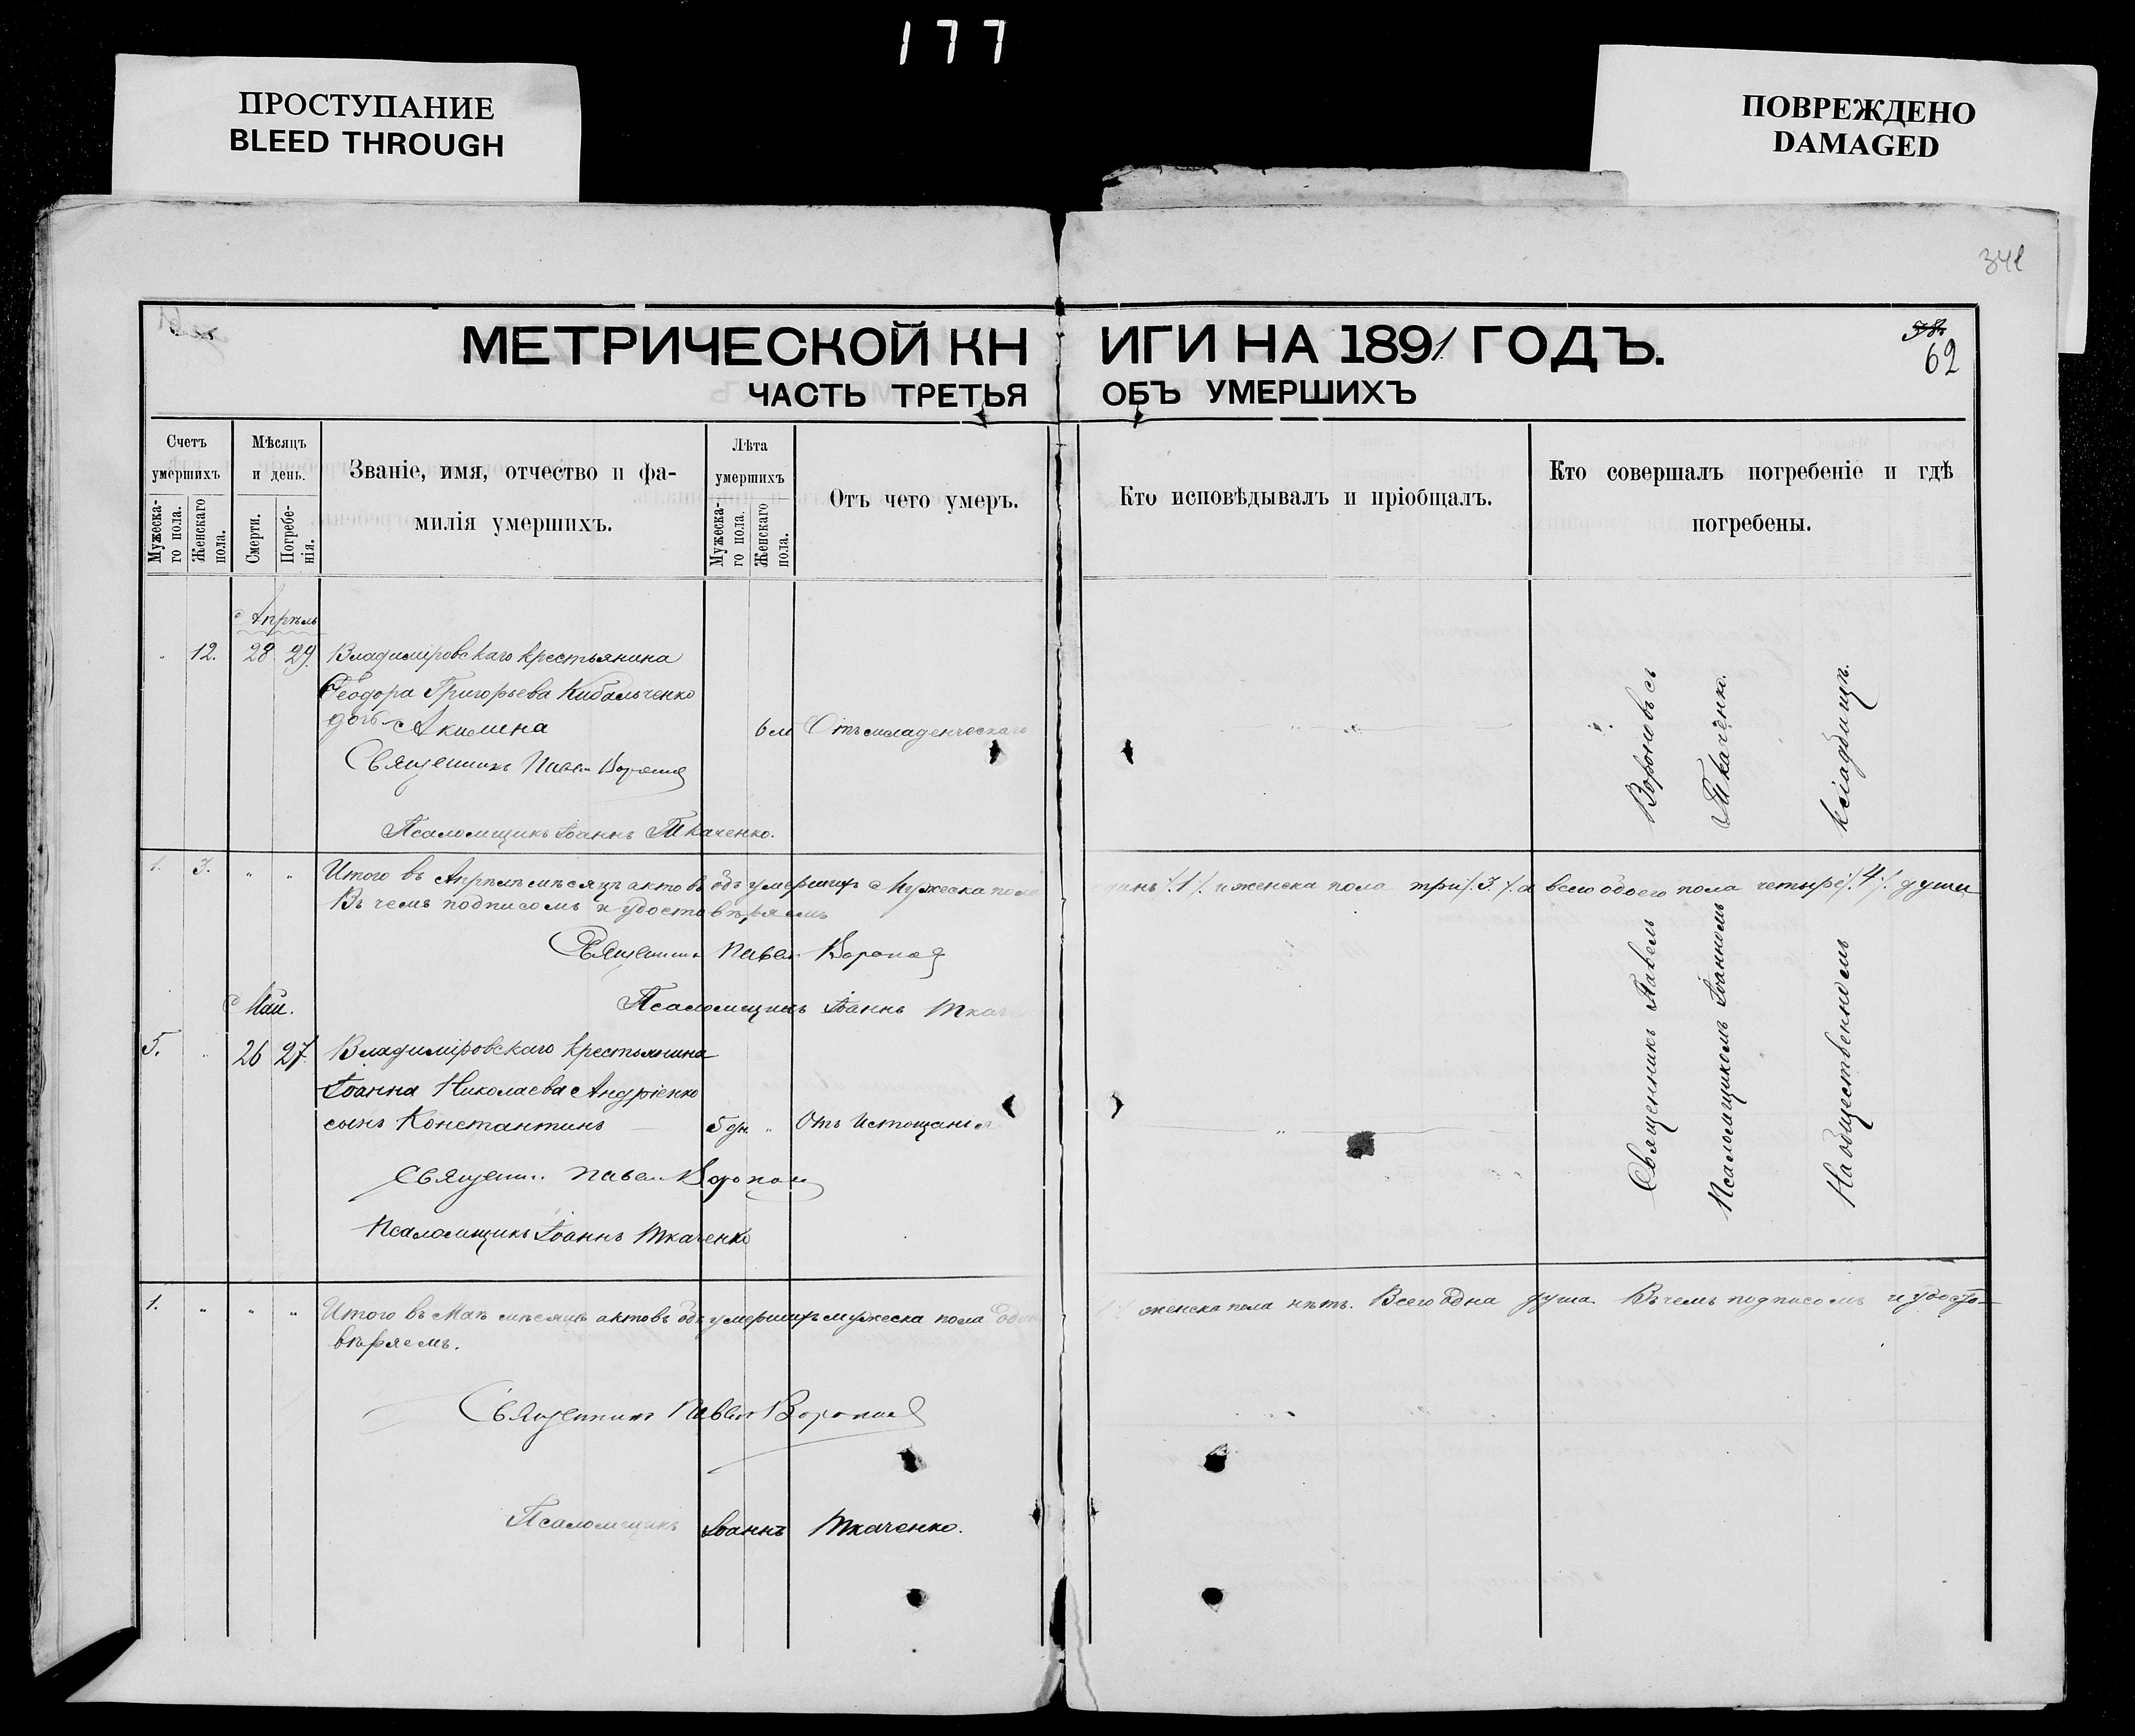 177
ПРОСТУПАНИЕ
BLEED THROUGH
ПОВРЕЖДЕНО
DAMAGED
341
МЕТРИЧЕСКОЙ КНИГИ НА 1891 ГОДЪ.
62
ЧАСТЬ ТРЕТЬЯ ОБЪ УМЕРШИХЪ
Счетъ умершихъ
Мужеска-го пола.
Женскаго пола.
Мѣсяцъ и день.
Смерти.
Погребе-нія.
Званіе, имя, отчество и фа-
милія умершихъ.
Лѣта умершихъ
Мужеска-го пола.
Женскаго пола.
Отъ чего умеръ.
Кто исповѣдывалъ и пріобщалъ.
Кто совершалъ погребеніе и гдѣ
погребены.
Апрѣль
12. 28 29. Владимі­ровскаго крестьянина
Ѳеодора Григорьева Кибальченко
дочь Акилина 6 м Отъ младенческаго
Священникъ Павелъ Воронов
Псаломщикъ Іоаннъ Ткаченко.
1. 3. " " Итого въ Апрѣлѣ мѣсяцѣ актовъ объ умершихъ Мужеска пола одинъ /.1./. и женска пола три /.3./. а всего обоего пола четыре /.4./. души
Въ чемъ подписомъ и удостовѣряемъ
Священникъ Павелъ Воронов
Псаломщикъ Іоаннъ Ткаченко
Май.
5. 26 27. Владиміровскаго крестьянина
Іоанна Николаева Андріенко
сынъ Константинъ 5 дн. " Отъ истощанія
Священникъ Павелъ Воронов
Псаломщикъ Іоаннъ Ткаченко
Священникъ Павелъ Вороновъ съ
Псаломщикомъ Іоанномъ Ткаченко.
На общественномъ кладбищѣ.
1. " " " Итого въ Маѣ мѣсяцѣ актовъ объ умершихъ мужеска пола одинъ женска пола нѣтъ. Всего одна душа. Въ чемъ подписомъ и удосто-
вѣряемъ.
Священникъ Павелъ Воронов
Псаломщикъ Іоаннъ Ткаченко.